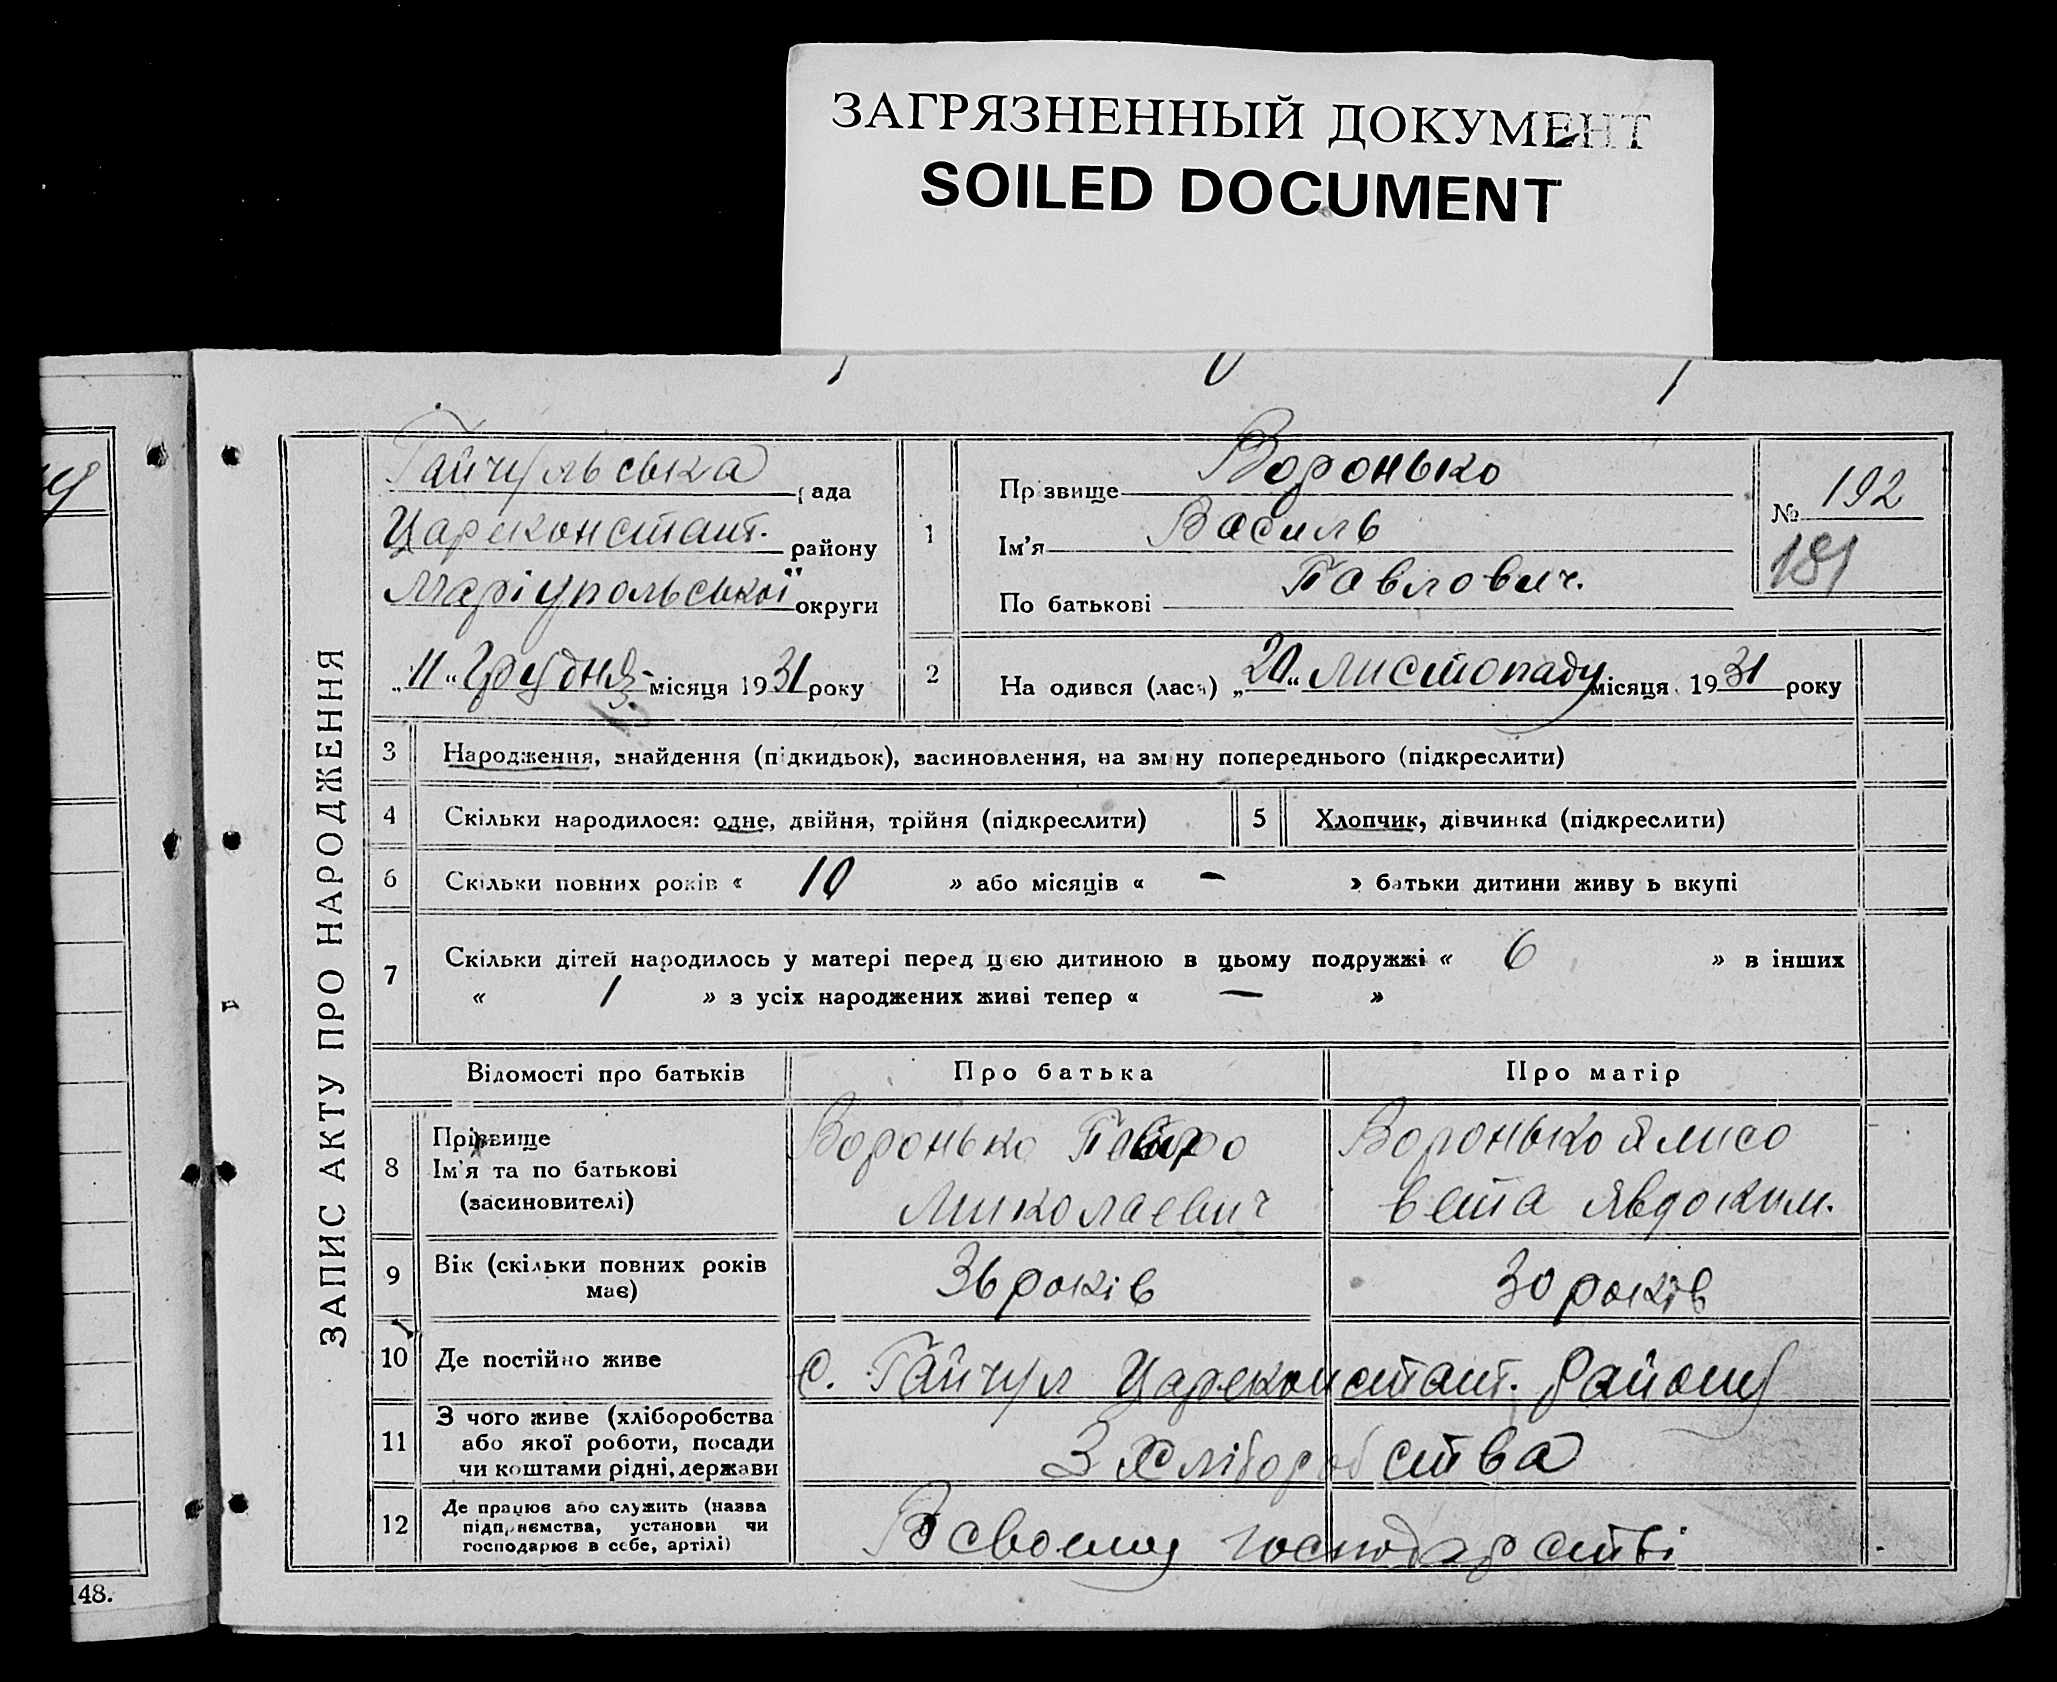 ЗАГРЯЗНЕННЫЙ ДОКУМЕНТ
SOILED DOCUMENT
ЗАПИС АКТУ ПРО НАРОДЖЕННЯ
Гайчульська рада
Цареконстант. району
Маріупольської округи
„11“ Грудня місяця 1931 року
1
Прізвище Воронько
Ім'я Василь
По батькові Павлович.
№ 192
181
2
На одився (лася) „20“ листопаду місяця 1931 року
3 Народження, знайдення (підкидьок), засиновлення, на зміну попереднього (підкреслити)
4 Скільки народилося: одне, двійня, трійня (підкреслити)
5 Хлопчик, дівчинка (підкреслити)
6 Скільки повних років « 10 » або місяців « — » батьки дитини живуть вкупі
7 Скільки дітей народилось у матері перед цією дитиною в цьому подружжі « 6 » в інших
« 1 » з усіх народжених живі тепер « — »
Відомості про батьків
Про батька
Про матір
8 Прізвище
Ім'я та по батькові
(засиновителі)
Воронько Павло
Миколаєвич
Воронько Ялисо
вета Явдоким.
9 Вік (скільки повних років
має)
36 років
30 років
10 Де постійно живе
с. Гайчул Цареконстант. району
11 З чого живе (хліборобства
або якої роботи, посади
чи коштами рідні, держави
З хліборобства
12 Де працює або служить (назва
підприємства, установи чи
господарює в себе, артілі)
В своєму господарстві
148.